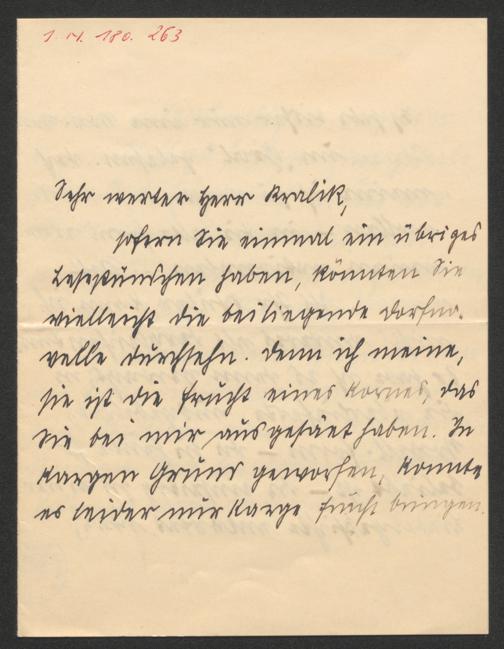 1. N. 180. 263
Sehr werter Herr Kralik,
sofern Sie einmal ein übriges
Lesestünschen haben, könnten Sie
vielleicht die beiliegende Dorfno-
velle durchsehn. Denn ich meine,
sie ist die Frucht eines Kornes, das
Sie bei mir ausgesäet haben. In
kargen Grund geworfen, konnte
es leider nur karge Frucht bringen.